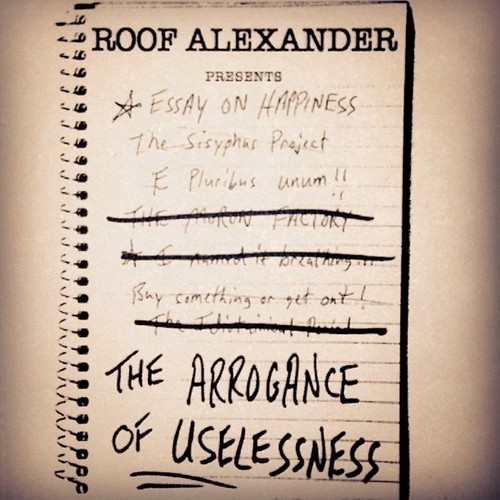 ROOF ALEXANDER
PRESENTS
ESSAY ON HAPPINESS
The Sisyphus Project
E Pluribus unum!!
THE MORON FACTORY
I named it breathing...
Buy something or get out!
The
THE ARROGANCE
OF USELESSNESS